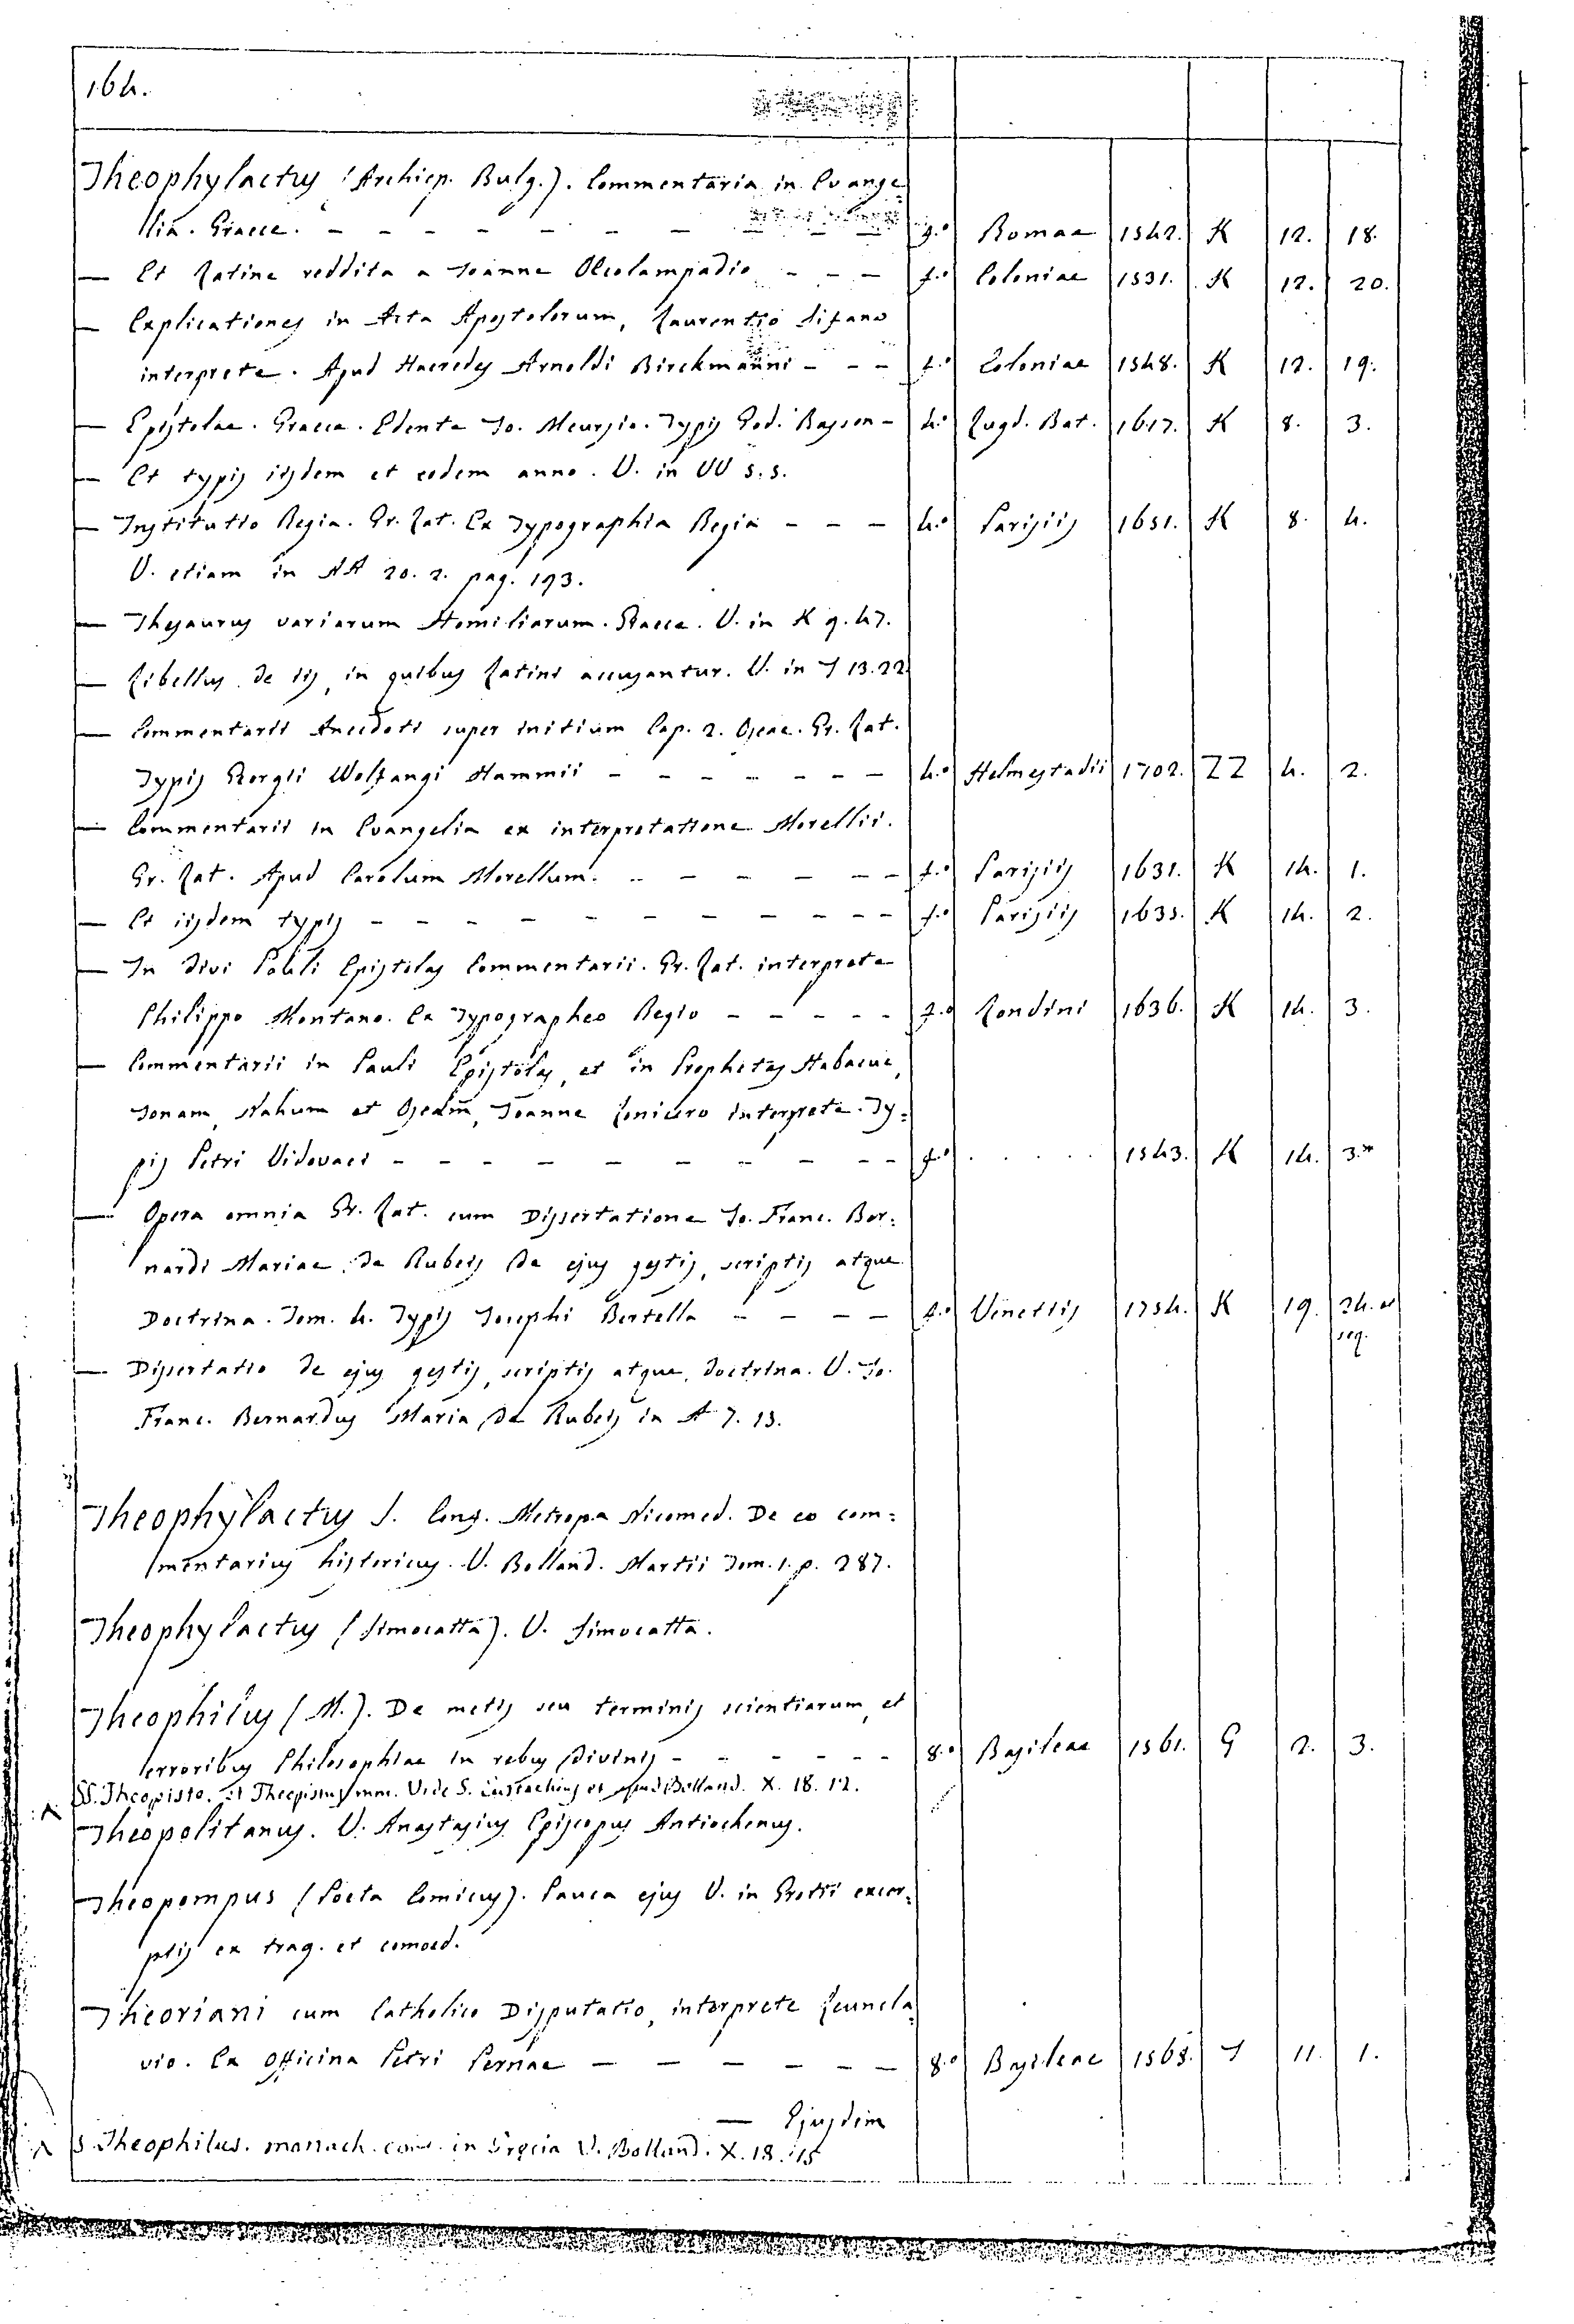 164.
Theophylactus (Archiep. Bulg.). Commentaria in Evange
lia. Graece. - - - - - - - - - - f.º Romae 1542. K 12. 18.
— Et Latine reddita a Joanne Oecolampadio - - - f.º Coloniae 1531. K 12. 20.
— Explicationes in Acta Apostolorum, Laurentio Sifano
interprete. Apud Haeredes Arnoldi Birckmanni - - - f.º Coloniae 1548. K 12. 19.
— Epistolae. Graece. Edente Jo. Meursio. Typis God. Basson - 4.º Lugd. Bat. 1617. K 8. 3.
— Et typis iisdem et eodem anno. V. in VV 5.5.
— Institutio Regia. Gr. Lat. Ex Typographia Regia - - - 4.º Parisiis 1651. K 8. 4.
V. etiam in AA 20. 2. pag. 193.
— Thesaurus variarum Homiliarum. Graece. V. in K 9. 47.
— Libellus de iis, in quibus Latini accusantur. V. in Y 13.22
— Commentarii Anecdoti super initium Cap. 2. Oseae. Gr. Lat.
Typis Georgii Wolfangi Hammii - - - - - - 4.º Helmestadii 1702. ZZ 4. 2.
— Commentarii in Evangelia ex interpretatione Morellii.
Gr. Lat. Apud Carolum Morellum. - - - - - - f.º Parisiis 1631. K 14. 1.
— Et iisdem typis - - - - - - - - - - f.º Parisiis 1635. K 14. 2.
— In Divi Pauli Epistolas Commentarii. Gr. Lat. interprete
Philippo Montano. Ex Typographeo Regio - - - - - f.º Londini 1636. K 14. 3.
— Commentarii in Pauli Epistolas, et in Prophetas Habacuc,
Jonam, Nahum et Oseam, Joanne Lonicero interprete. Ty:
pis Petri Vidovaei - - - - - - - - - - f.º . . . . . 1543. K 14. 3.*
— Opera omnia Gr. Lat. cum Dissertatione Jo. Franc. Ber:
nardi Mariae de Rubeis de ejus gestis, scriptis atque
Doctrina. Tom. 4. Typis Josephi Bertella - - - - f.º Venetiis 1754. K 19. 24. et
seq.
— Dissertatio de ejus gestis, scriptis atque doctrina. V. Jo.
Franc. Bernardus Maria de Rubeis in A 7. 13.
Theophylactus S. Conf. Metrop. Nicomed. De eo com:
mentarius historicus. V. Bolland. Martii Tom. 1. p. 287.
Theophylactus (Simocatta). V. Simocatta.
Theophilus (M.). De metis seu terminis scientiarum, et
erroribus Philosophiae in rebus Divinis - - - - - - 8.º Basileae 1561. G 2. 3.
SS. Theopisto. et Theopistus mm. Vide S. Eustachius et apud Bolland. X. 18. 12.
Theopolitanus. V. Anastasius Episcopus Antiochenus.
Theopompus (Poeta Comicus). Pauca ejus V. in Grotii excer:
ptis ex trag. et comoed.
Theoriani cum Catholico Disputatio, interprete Leuncla
vio. Ex Officina Petri Pernae - - - - - - 8.º Basileae 1568. Y 11. 1.
— Ejusdem
S. Theophilus. monach. in Grecia V. Bolland. X. 18. 15